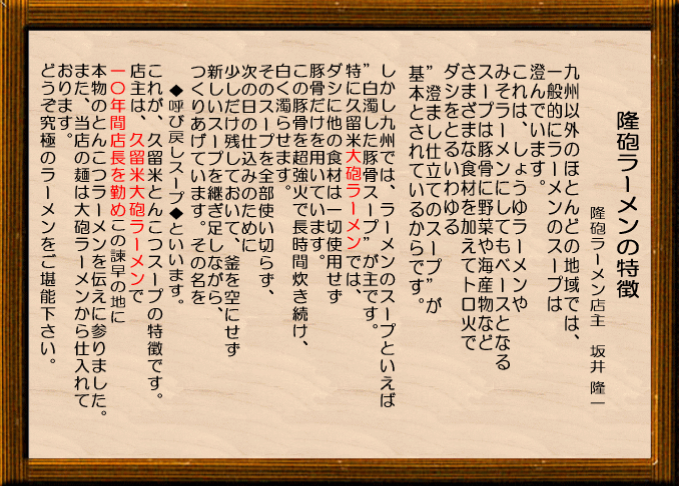 隆砲ラーメンの特徴
隆砲ラーメン店主 坂井 隆一
九州以外のほとんどの地域では、
一般的にラーメンのスープは
澄んでいます。
これは、しょうゆラーメンや
みそラーメンにしてもベースとなる
スープは豚骨に野菜や海産物など
さまざまな食材を加えてトロ火で
ダシをとるいわゆる
”澄まし仕立てのスープ”が
基本とされているからです。
しかし九州では、ラーメンのスープといえば
”白濁した豚骨スープ”が主です。
特に久留米大砲ラーメンでは、
ダシに他の食材は一切使用せず
豚骨だけを用いています。
この豚骨を超強火で長時間炊き続け、
白く濁らせます。
そのスープを全部使い切らず、
次の日の仕込みのために
少しだけ残しておいて、釜を空にせず
新しいスープを継ぎ足しながら、
つくりあげています。その名を
◆呼び戻しスープ◆といいます。
これが、久留米とんこつスープの特徴です。
店主は、久留米大砲ラーメンで
一〇年間店長を勤めこの諫早の地に
本物のとんこつラーメンを伝えに参りました。
また、当店の麺は大砲ラーメンから仕入れて
おります。
どうぞ究極のラーメンをご堪能下さい。